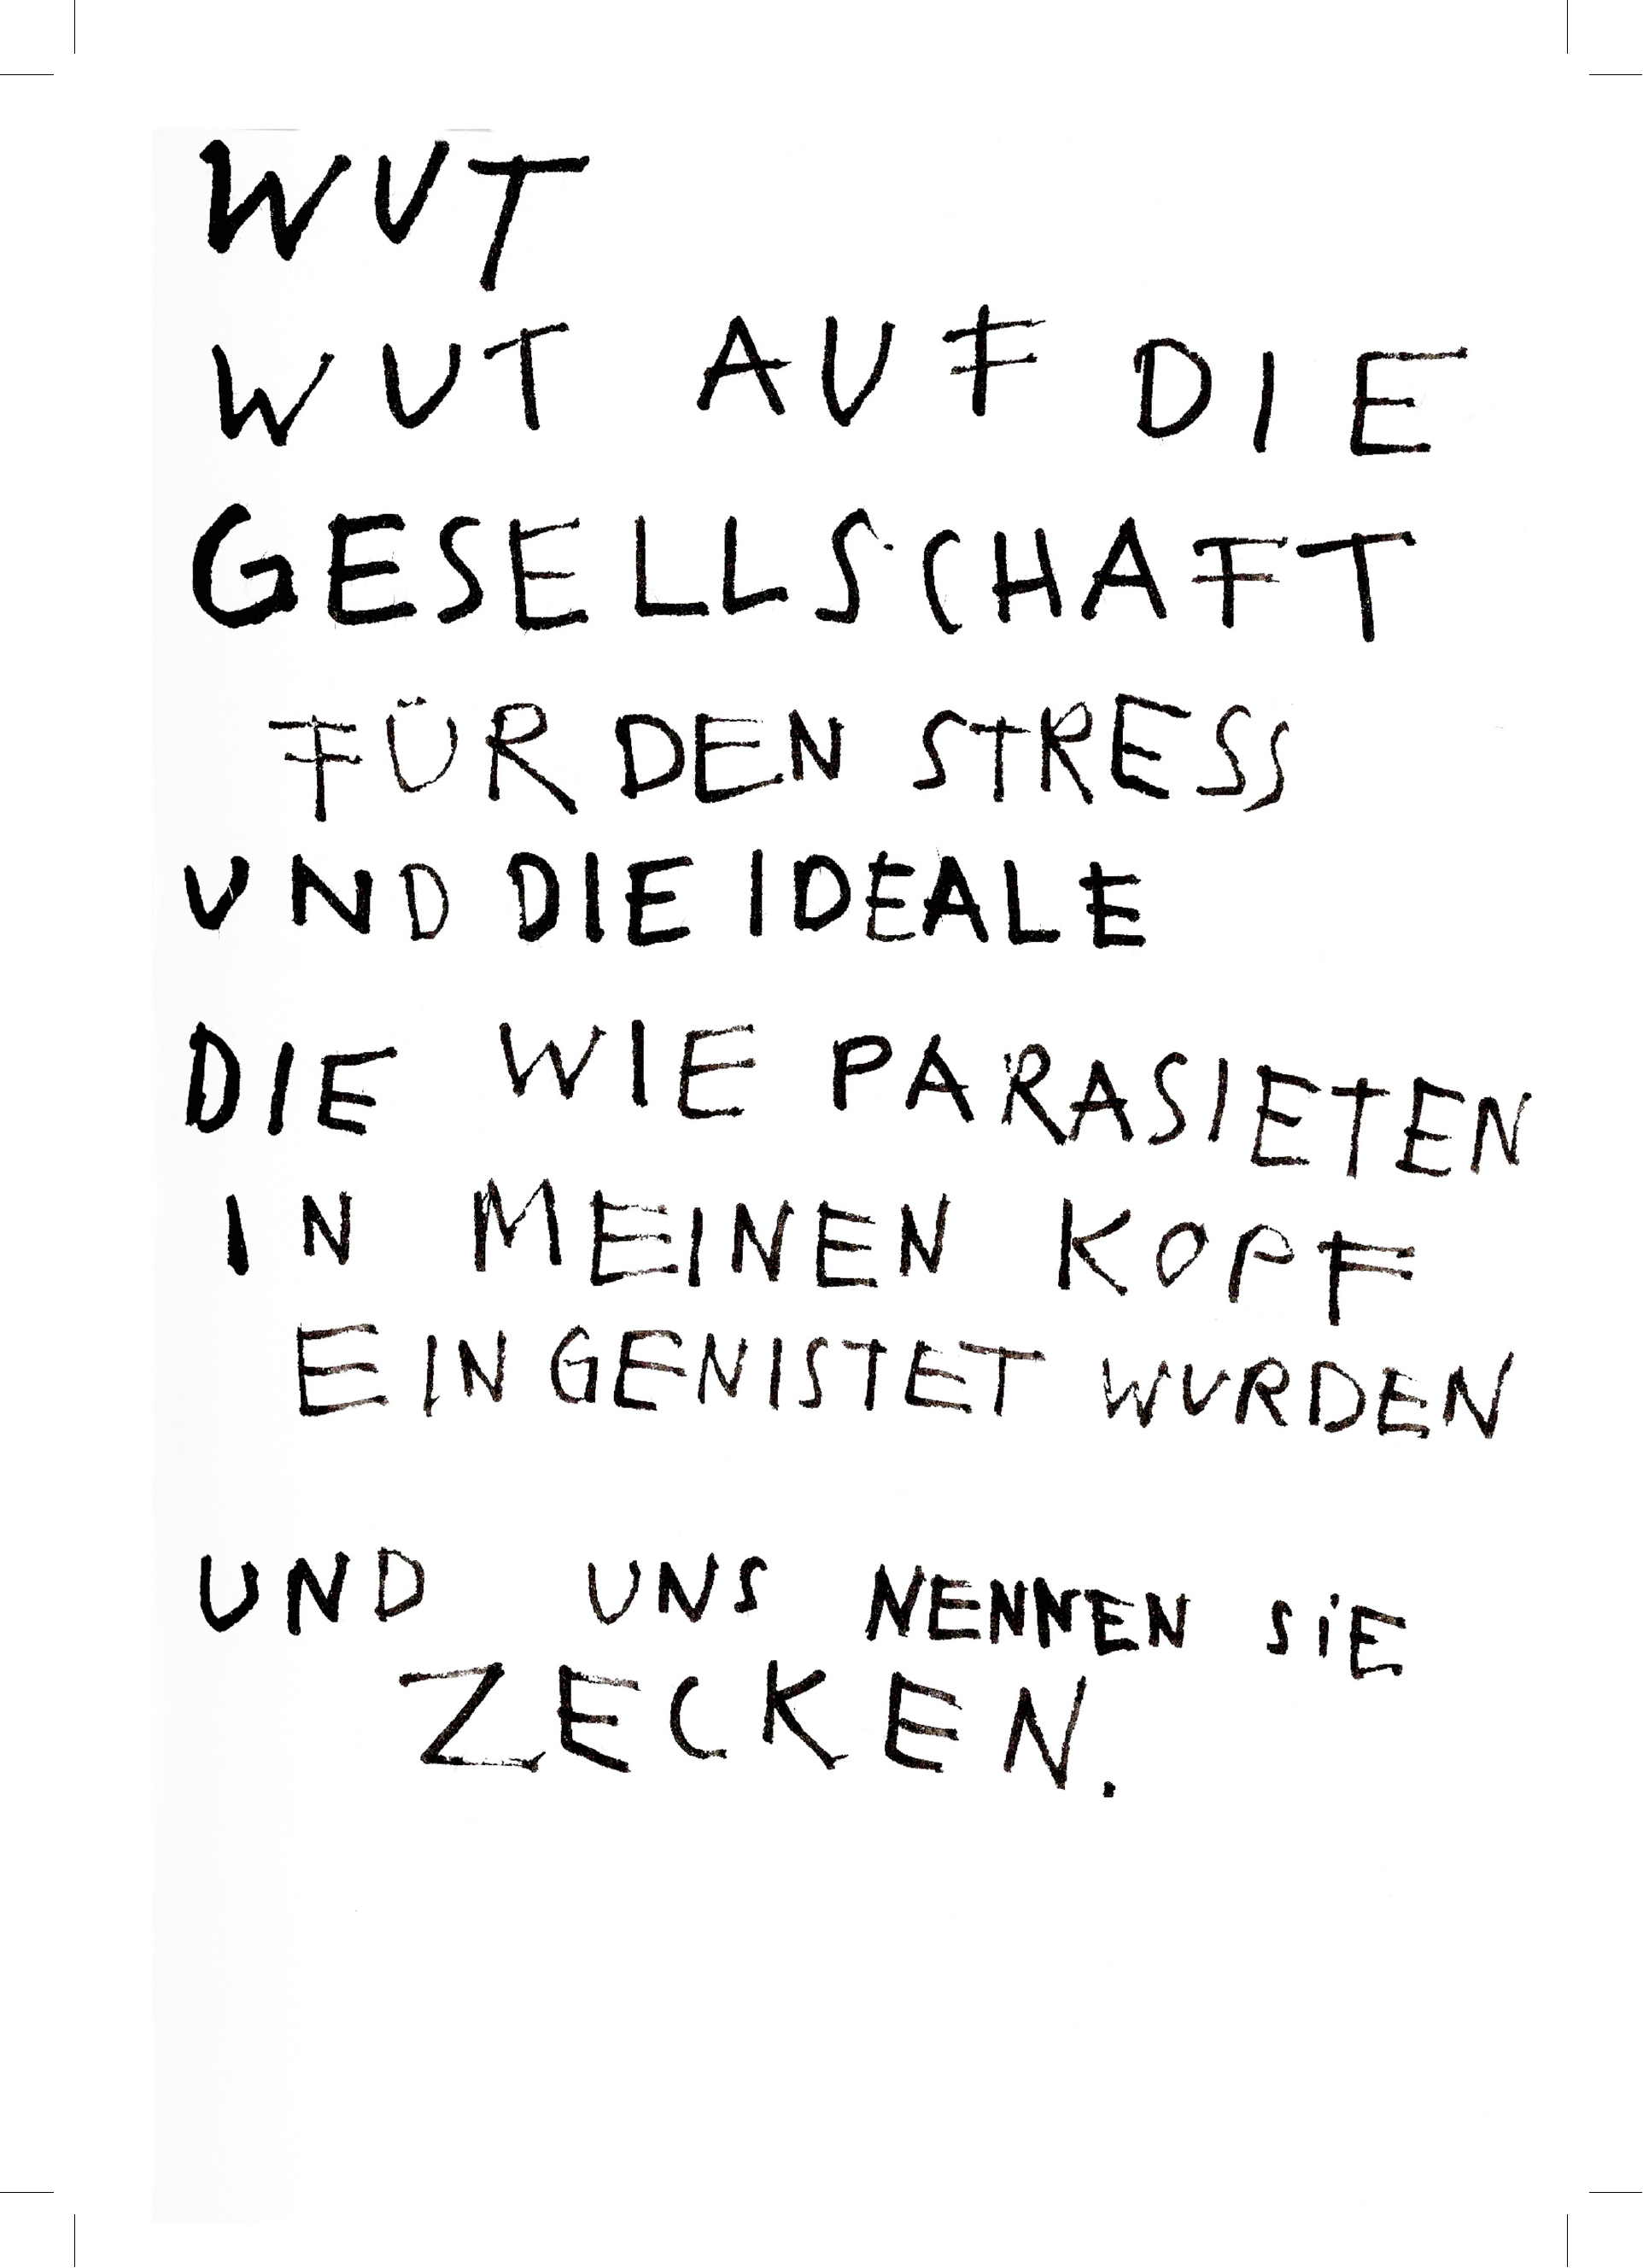 WUT
WUT AUF DIE
GESELLSCHAFT
FÜR DEN STRESS
UND DIE IDEALE
DIE WIE PARASIETEN
IN MEINEN KOPF
EINGENISTET WURDEN
UND UNS NENNEN SiE
ZECKEN.